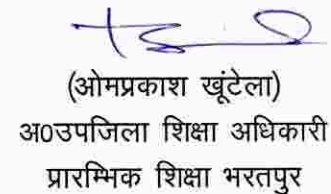 (ओमप्रकाश खूंटेला)
अ0उपजिला शिक्षा अधिकारी
प्रारम्भिक शिक्षा भरतपुर